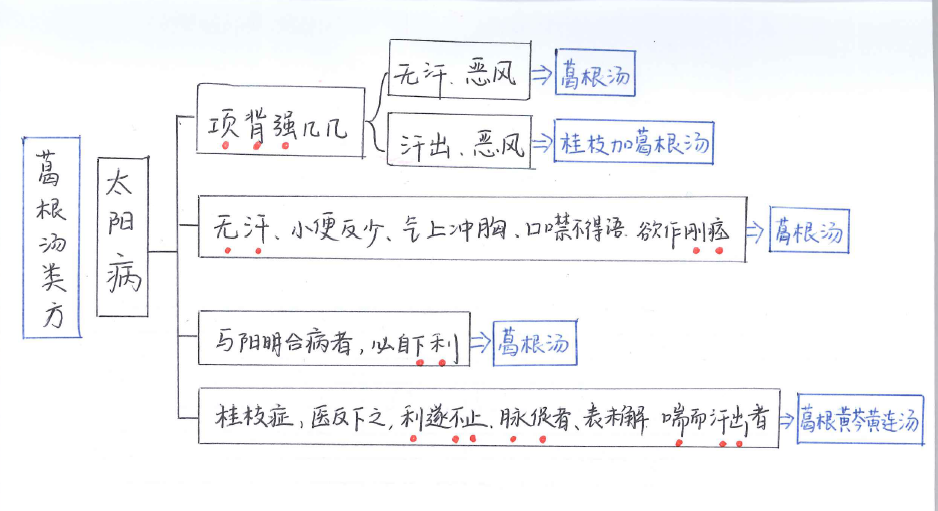 葛根汤类方
太阳病
项背强几几
无汗、恶风
葛根汤
汗出、恶风
桂枝加葛根汤
无汗、小便反少、气上冲胸、口噤不得语.欲作刚痉
葛根汤
与阳明合病者,必自下利
葛根汤
桂枝症,医反下之,利遂不止、脉促者、表未解 喘而汗出者
葛根黄芩黄连汤